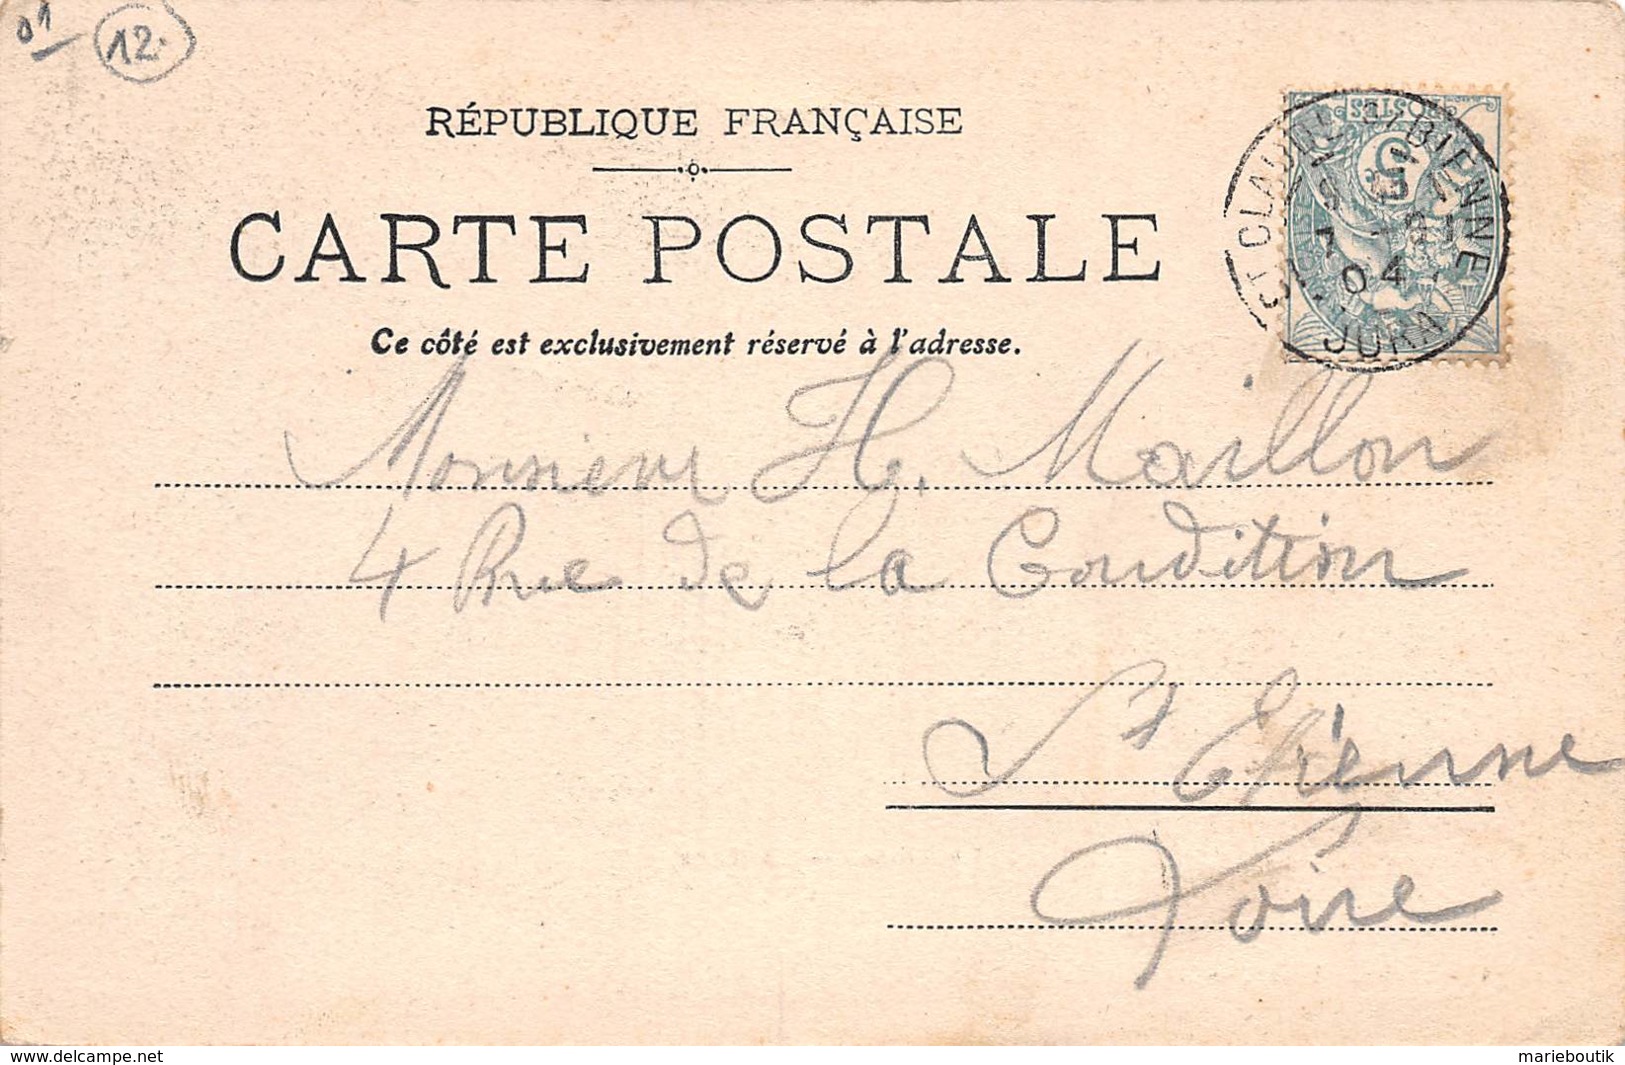 01
12.
RÉPUBLIQUE FRANÇAISE
CARTE POSTALE
Ce côté est exclusivement réservé à l'adresse.
POSTES
5
ST CLAUDE S/BIENNE
04
JURA
Monsieur H. Maillon
4 Rue de la Condition
St Etienne
Loire
www.delcampe.net
marieboutik